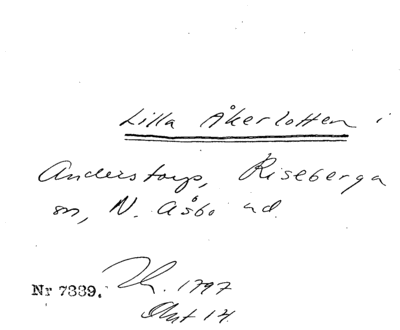 Lilla Åkerlotten i
Anderstorp, Riseberga
sn, N. Åsbo hd.
Nr 7339. 1797
Akt 14